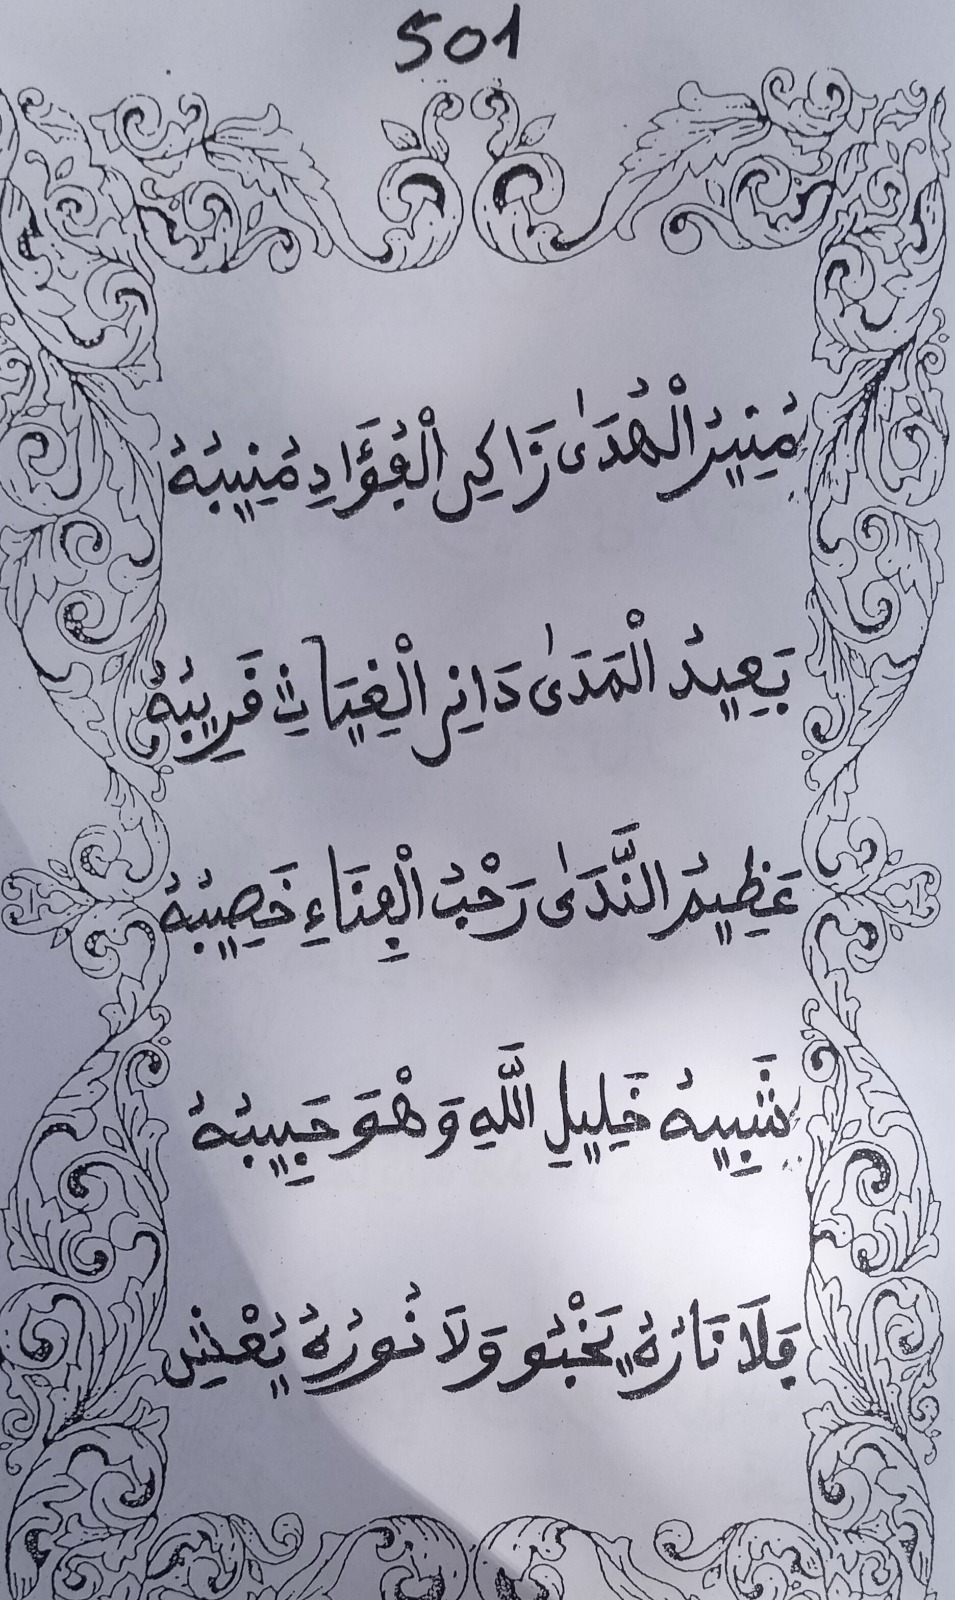 501
مُنِيرُ الْهُدَىٰ زَاكِي الْفُؤَادِ مُنِيبُهُ
بَعِيدُ الْمَدَىٰ دَانِي الْغِيَاثِ قَرِيبُهُ
عَظِيمُ النَّدَىٰ رَحْبُ الْفِنَاءِ خَصِيبُهُ
شَبِيهُ خَلِيلِ اللَّهِ وَهْوَ حَبِيبُهُ
فَلَا نَارُهُ تَخْبُو وَلَا نُورُهُ يُعْشِي